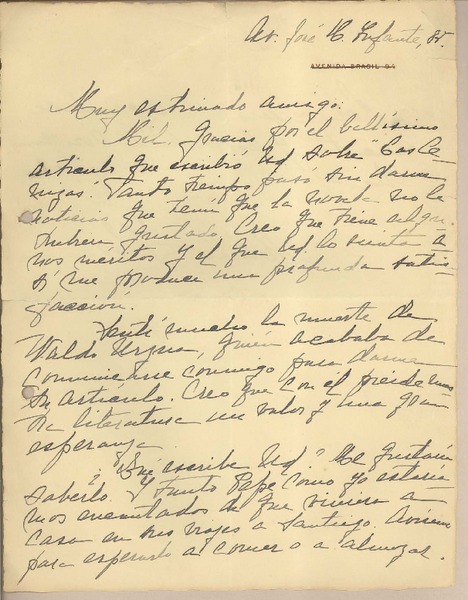 Av. José M. Infante, 85.
AVENIDA BRASIL 94
Muy estimado amigo:
Mil gracias por el bellísimo
artículo que escribió Ud sobre "Las Ce
nizas". Tanto tiempo pasó sin darme
noticias que temí que la novela no le
hubiera gustado. Creo que tiene algu
nos méritos y el que Ud. lo sienta a
sí me produce una profunda satis
facción.
Sentí mucho la muerte de
Waldo Urzúa, quién acababa de
comunicarse conmigo para darme
su artículo. Creo que con él pierde nues
tra literatura un valor y una gran
esperanza.
¿Qué escribe Ud.? Me gustaría
saberlo. Y tanto Pepe como yo estaría
mos encantados de que viniera a
casa en sus viajes a Santiago. Avíseme
para esperarlo a comer o a almorzar.